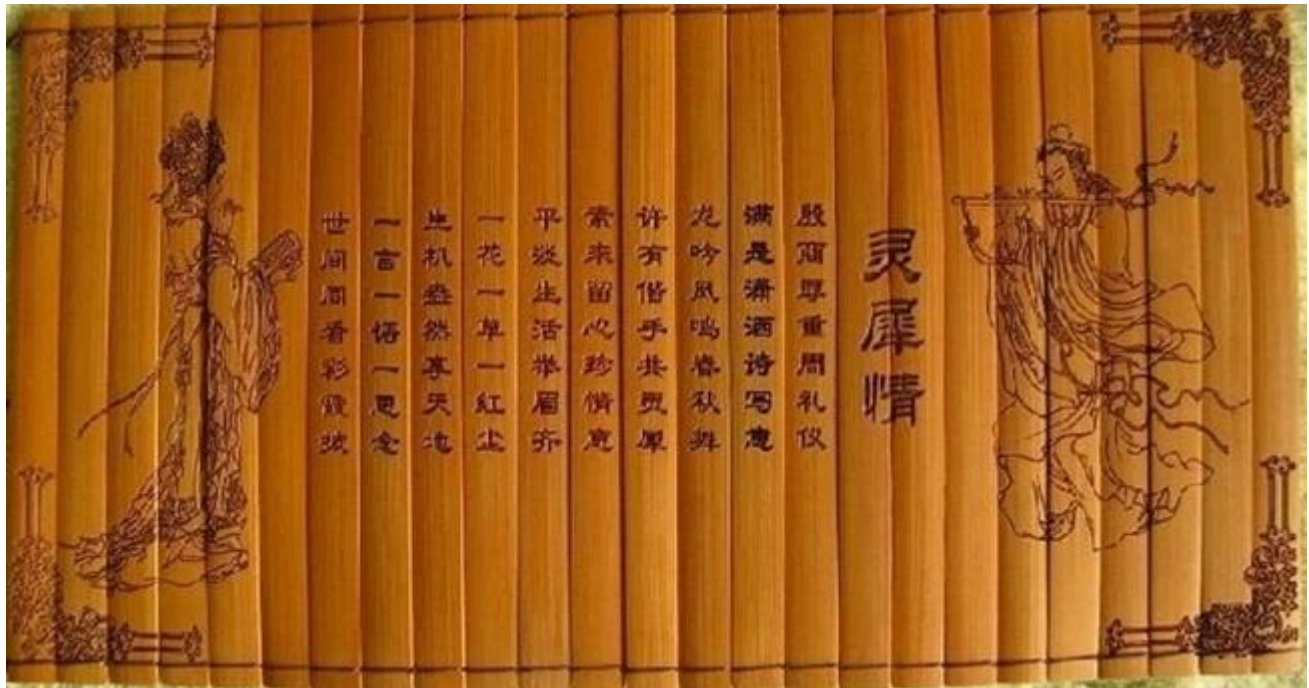 灵犀情
殷商尊重周礼仪
满是潇洒诗写意
龙吟凤鸣春秋舞
许有偕手共灵犀
素来留心珍情意
平淡生活举眉齐
一花一草一红尘
生机盎然享天地
一言一语一思念
世间同看彩霞波